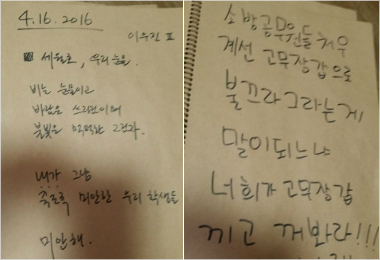 4.16.2016
이우진 II
세월호, 우리 눈물.
비는 눈물이고
바람은 쓰라림이며
불빛은 막막한 그런가.
내가 그냥
죽도록 미안한 우리 학생들
미안해.
소방공무원들 처우
계선 고무장갑으로
불끄라그라는게
말이되느냐
너희가 고무장갑
끼고 꺼봐라!!!